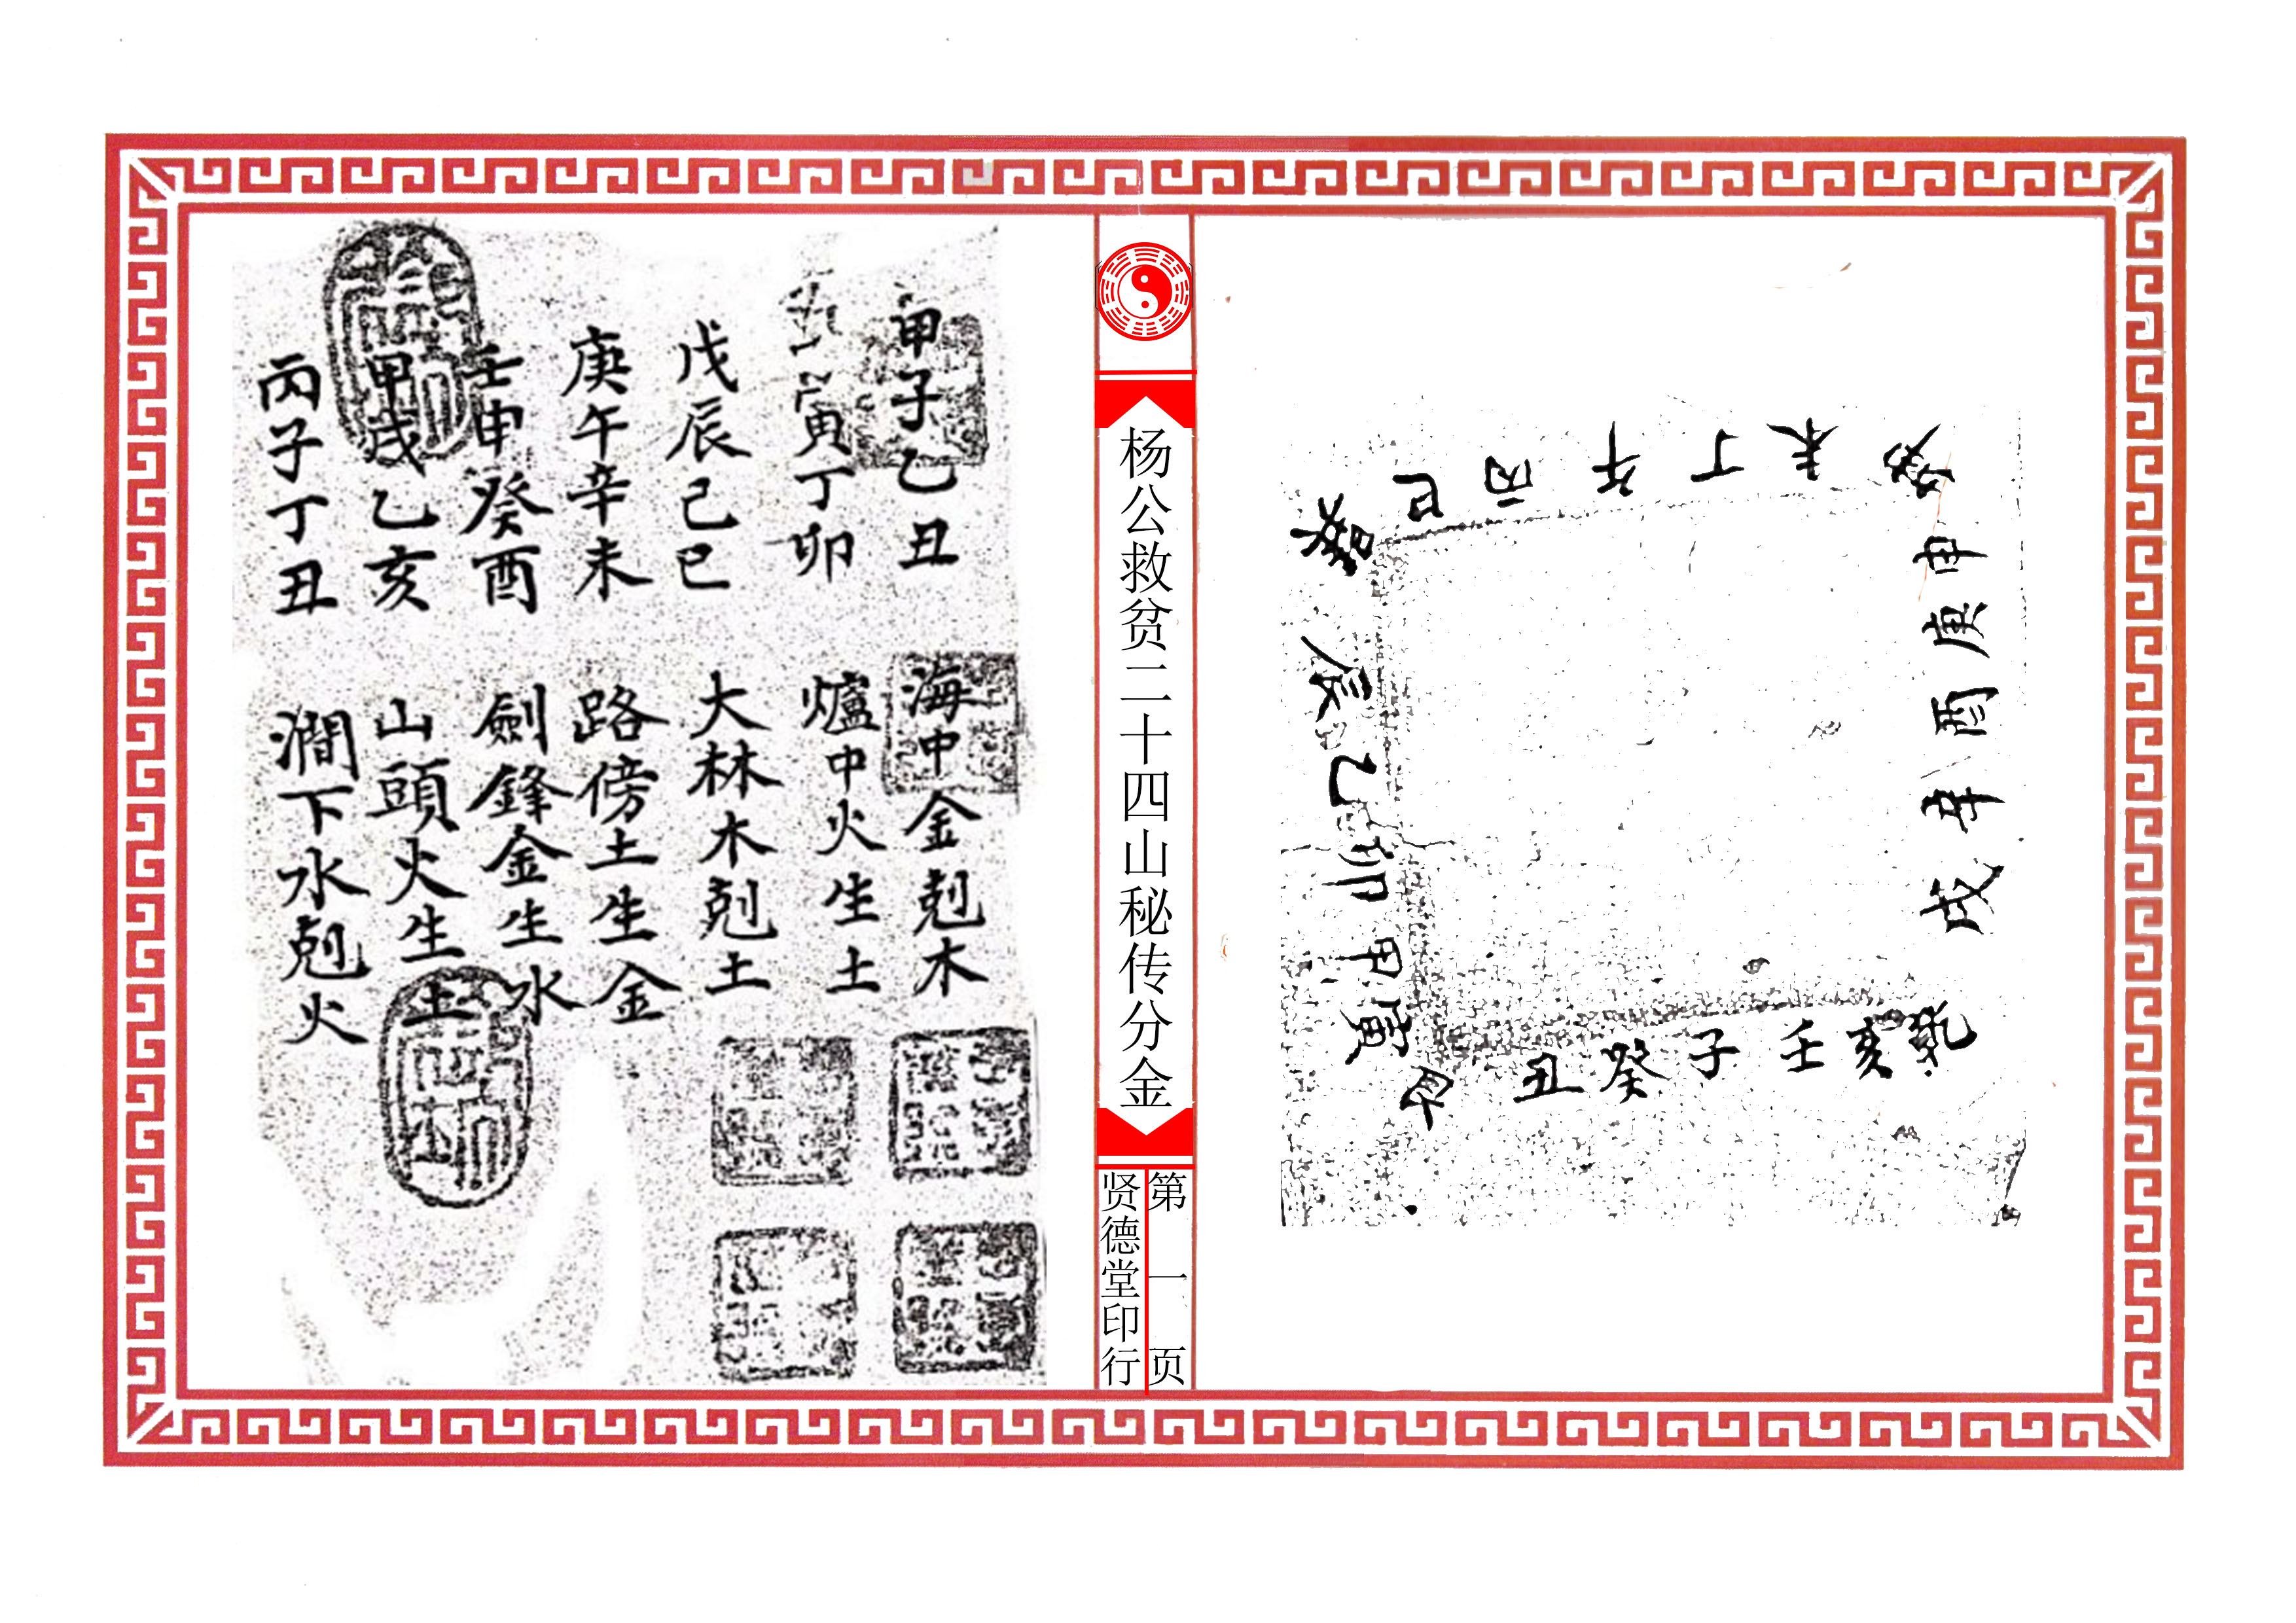 巳丙午丁未
申庚酉辛戌
乾亥壬子癸丑
艮寅甲卯乙辰
杨公救贫二十四山秘传分金
第一页
贤德堂印行
甲子乙丑 海中金剋木
寅丁卯 爐中火生土
戊辰己巳 大林木剋土
庚午辛未 路傍土生金
壬申癸酉 劍鋒金生水
甲戌乙亥 山頭火生土
丙子丁丑 澗下水剋火